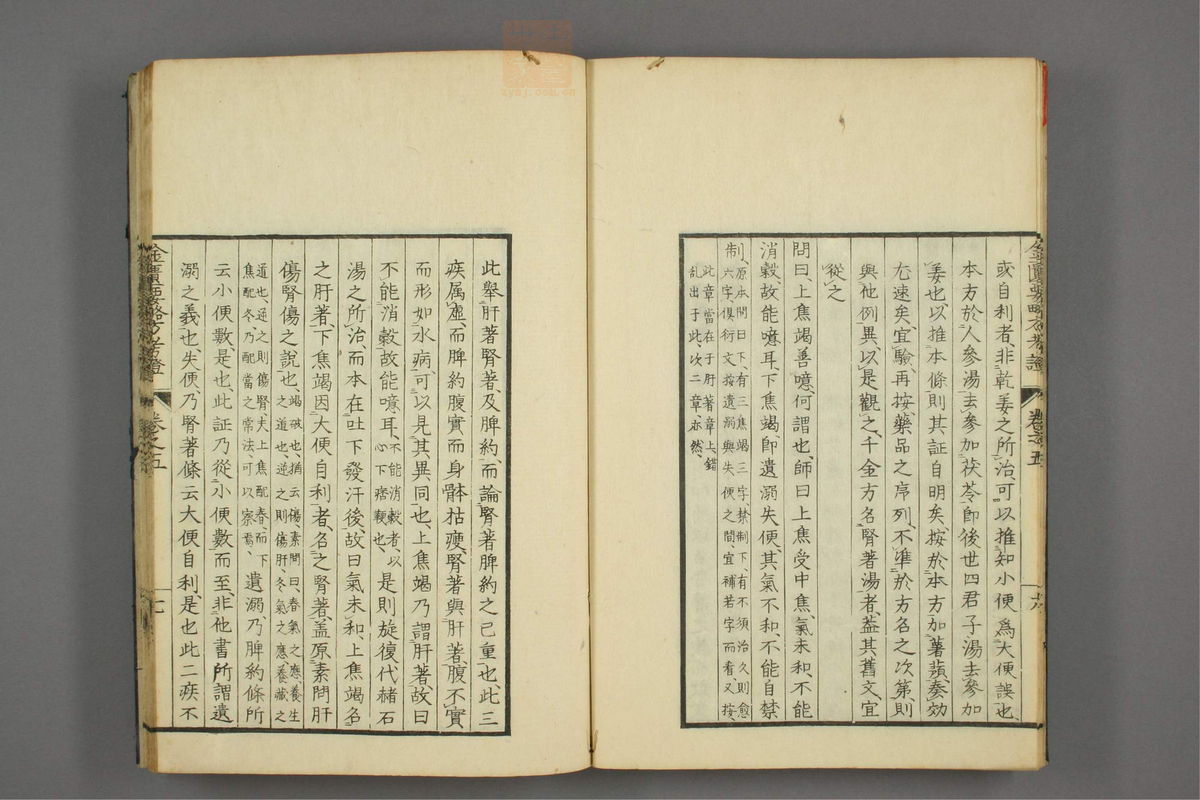 或自利者、非乾姜之所治、可以推知小便爲大便誤也、
本方於人參湯去參加茯苓、即後世四君子湯去參加
姜也、以推本條、則其証自明矣、按於本方加薯蕷、奏効
尤速矣、宜驗、再按、藥品之序列、不準於方名之次第、則
與他例異、以是觀之、千金方名腎著湯者、蓋其舊文、宜
從之
問曰、上焦竭善噫、何謂也、師曰上焦受中焦、氣未和、不能
消穀、故能噫耳、下焦竭、即遺溺失便、其氣不和、不能自禁
制、原本問曰下、有三焦竭三字、禁制下、有不須治久則愈
六字、俱衍文、按遺溺與失便之間、宜補若字而看、又按、
此章當在于肝著章上、錯
亂出于此、次二章、亦然、
金匱要略方考證 卷之五
此舉肝著腎著、及脾約、而論腎著脾約之已重也、此三
疾属虛、而脾約腹實而身体枯瘦、腎著與肝著、腹不實
而形如水病、可以見其異同也、上焦竭乃謂肝著、故曰
不能消穀、故能噫耳、不能消穀者、以
心下痞鞕也、是則旋復代赭石
湯之所治、而本在吐下發汗後、故曰氣未和、上焦竭名
之肝著、下焦竭因大便自利者、名之腎著、蓋原素問肝
傷腎傷之說也、竭破也、猶云傷、素問曰、春氣之應、養生
之道也、逆之則傷肝、冬氣之應、養藏之
道也、逆之則傷腎、夫上焦配春、而下
焦配冬、乃配當之常法、可以察焉、遺溺乃脾約條所
云小便數是也、此証乃從小便數而至、非他書所謂遺
溺之義也、失便、乃腎著條云大便自利、是也此二疾不
金匱要略方考證 卷之五